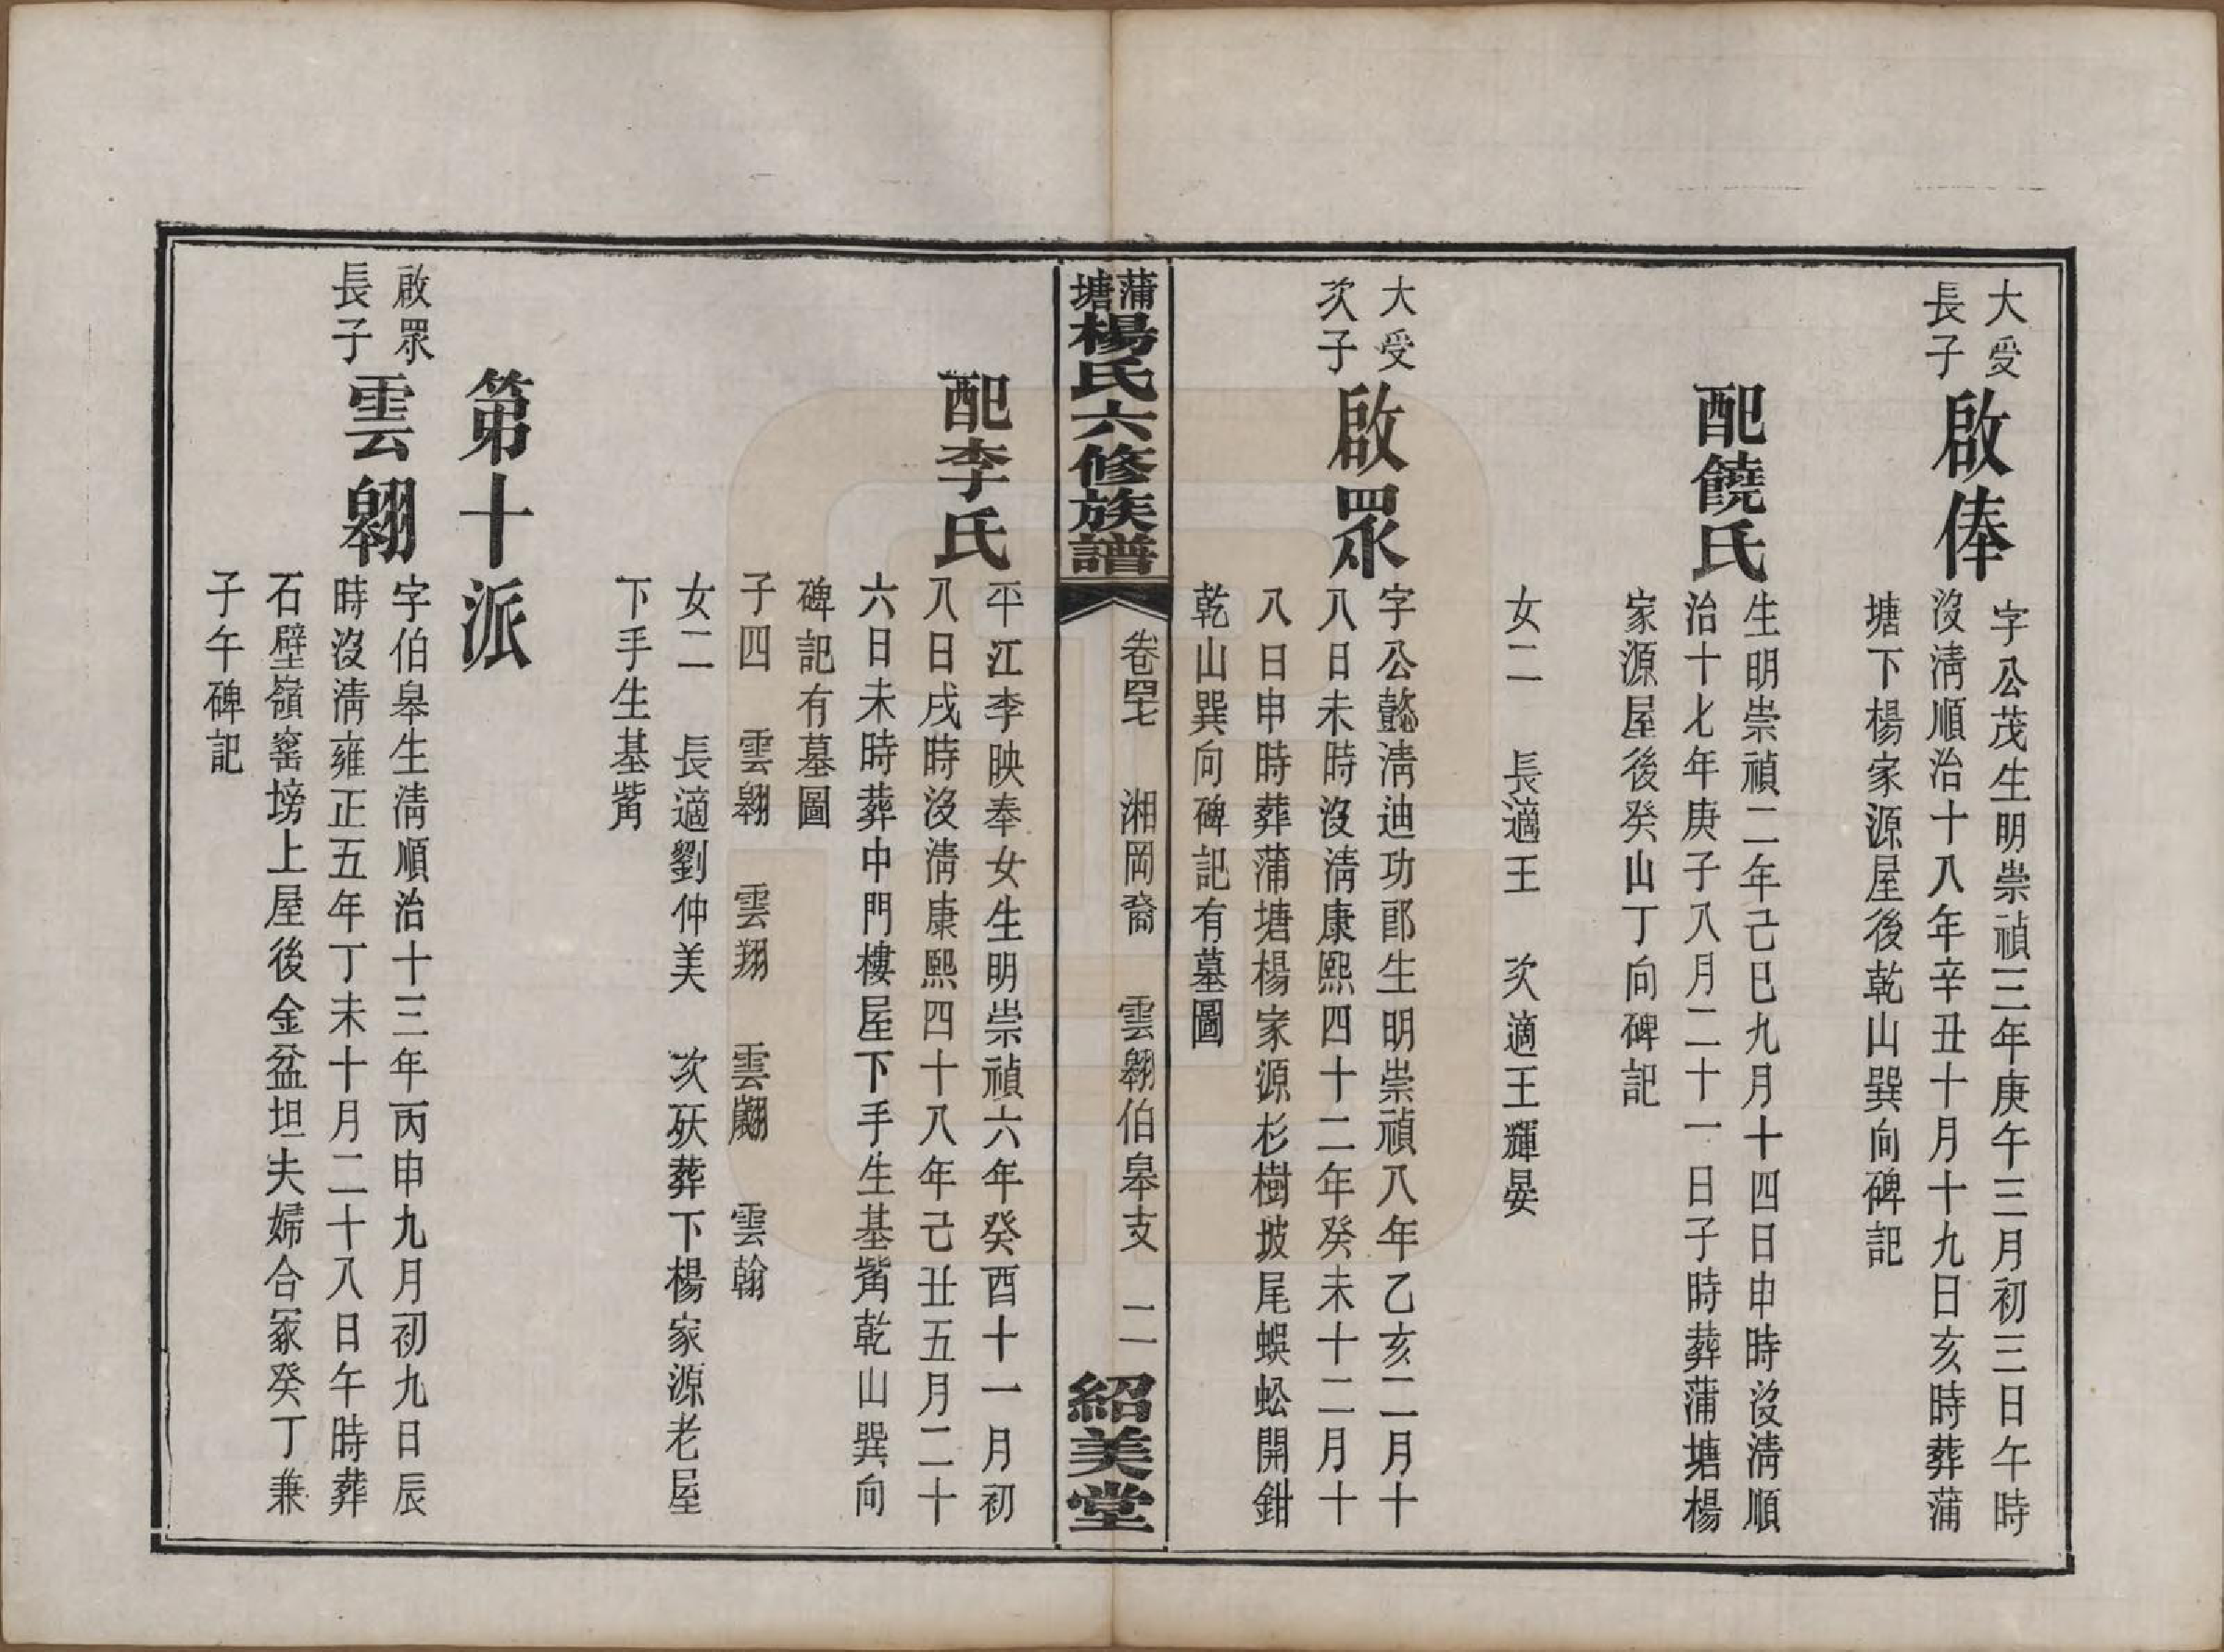 大受
長子
啟俸
字公茂生明崇禎三年庚午三月初三日午時
沒淸順治十八年辛丑十月十九日亥時葬蒲
塘下楊家源屋後乾山巽向碑記
配饒氏
生明崇禎二年己巳九月十四日申時沒淸順
治十七年庚子八月二十一日子時葬蒲塘楊
家源屋後癸山丁向碑記
女二　長適王　次適王輝晏
大受
次子
啟眾
字公懿淸迪功郎生明崇禎八年乙亥二月十
八日未時沒淸康熙四十二年癸未十二月十
八日申時葬蒲塘楊家源杉樹坡尾蜈蚣開鉗
乾山巽向碑記有墓圖
蒲塘楊氏六修族譜　卷四七　湘岡裔　雲翺伯皋支　二　紹美堂
配李氏
平江李映奉女生明崇禎六年癸酉十一月初
八日戌時沒淸康熙四十八年己丑五月二十
六日未時葬中門樓屋下手生基觜乾山巽向
碑記有墓圖
子四　雲翺　雲翔　雲翽　雲翰
女二　長適劉仲美　次殀葬下楊家源老屋
下手生基觜
第十派
啟眾
長子
雲翺
字伯皋生淸順治十三年丙申九月初九日辰
時沒淸雍正五年丁未十月二十八日午時葬
石壁嶺窰塝上屋後金盆坦夫婦合冢癸丁兼
子午碑記